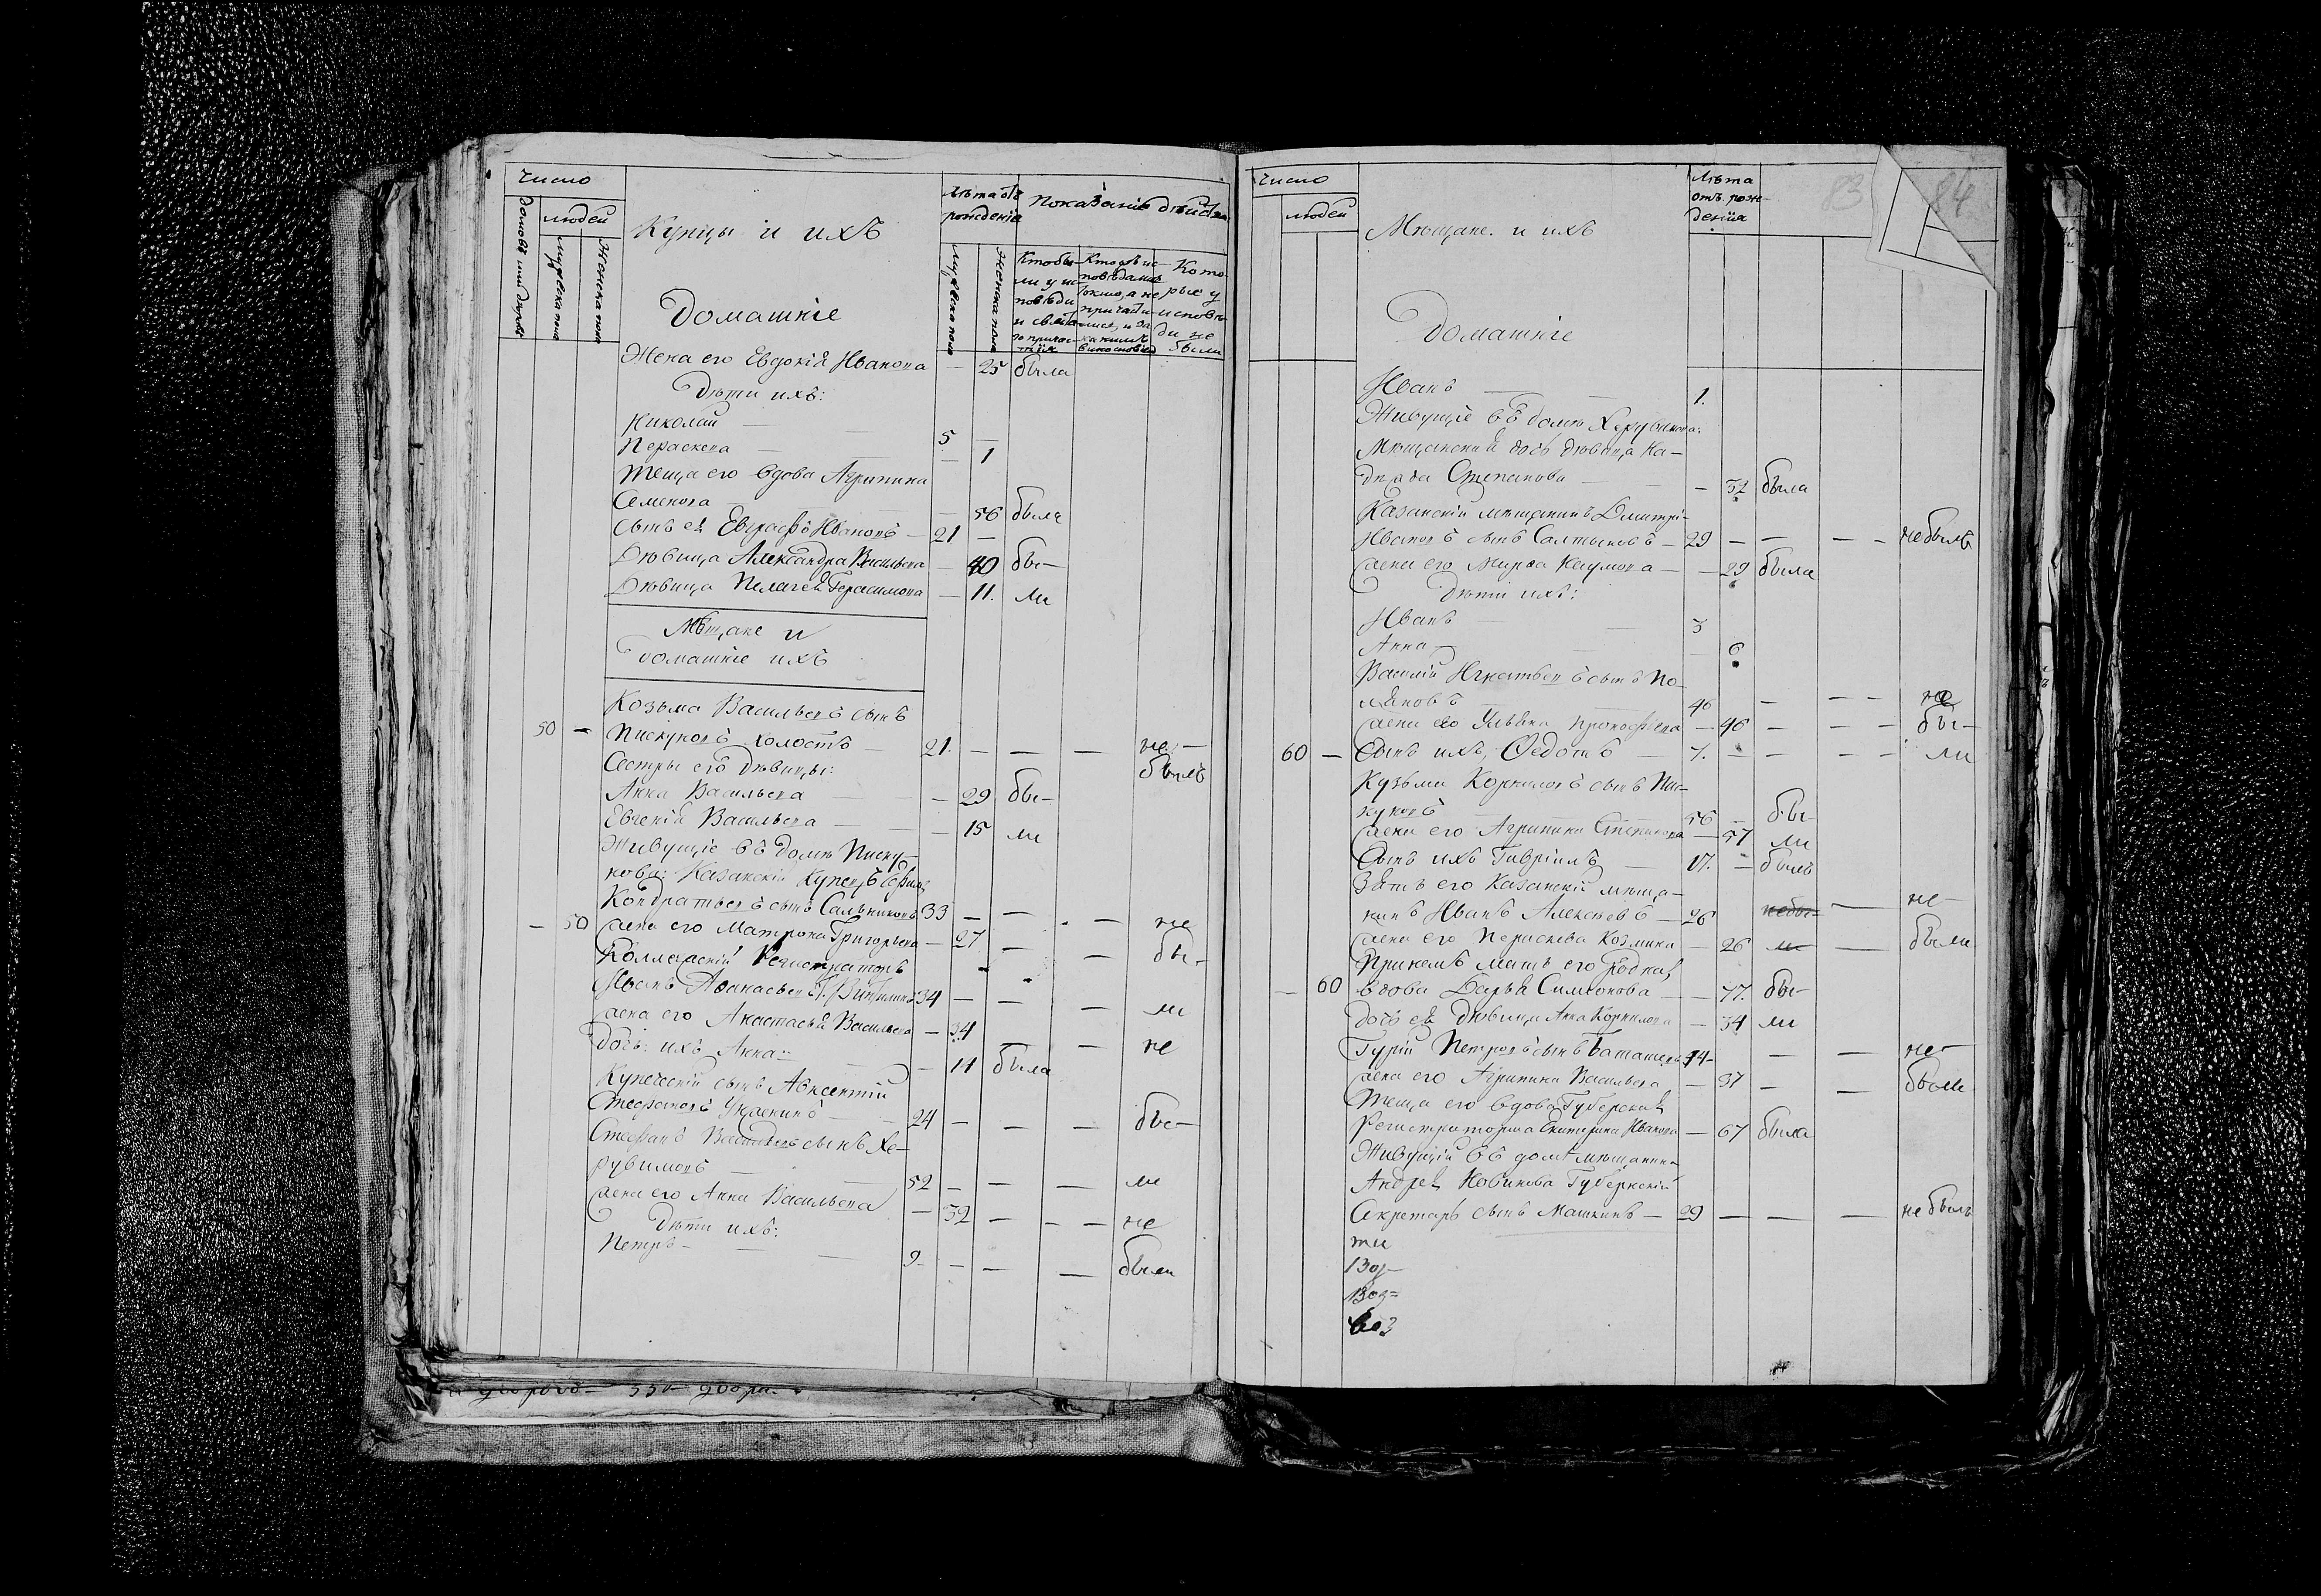 Число
людей
Домовъ или дворовъ
Мужеска пола
Женска пола
Купцы и ихъ
Домашніе
Лѣта отъ
рожденія
Мужеска пола
Женска пола
Показаніе дѣйства
Кто бы-
ли у ис-
повѣди
и свята-
го причас-
тія
Кто
токмо, а не
причасти-
лись, и за
какимъ
Кото-
рые у
исповѣ-
ди не
были
Жена его Евдокія Иванова — 25 была
Дѣти ихъ:
Николай — 5 —
Параскева — 1
Теща его вдова Агрипина
Семенова — 56 была
Сынъ ея Евграфъ Ивановъ — 21 —
Дѣвица Александра Васильева — 40 бы-
Дѣвица Пелагея Герасимова — 11. ли
Мѣщане и
домашніе ихъ
Козьма Васильевъ сынъ
50 — Пискуновъ холостъ — 21. — — — не-
былъ
Сестры его дѣвицы:
Анна Васильева — 29 бы-
Евгенія Васильева — 15 ли
Живущіе въ домѣ Писку-
нова: Казанскій Купецъ
Кондратьевъ сынъ Сальниковъ 33 — — — не
— 50 Жена его Матрона Григорьева — 27 — — бы-
Коллежскій Регистраторъ
Иванъ Афанасьевъ 34 — — — ли
Жена его Анастасья Васильева — 34 — — не
Дочь ихъ Анна: — 11 была
Купеческій сынъ Авксентій
Стефановъ — 24 — — — бы-
Стефанъ Васильевъ сынъ Хе-
рувимовъ — 52 — — — ли
Жена его Анна Васильева — 32 — — — не
Дѣти ихъ:
Петръ — 9 — — — были
Число
людей
Мѣщане. и ихъ
Домашніе
Лѣта
отъ рож-
денія
83
84
Иванъ — 1.
Живущіе въ домѣ Херувимова:
Мѣщанская дочь дѣвица Ка-
Степанова — — 32 была
Казанскій мѣщанинъ Дмитрі-
Ивановъ сынъ Салтыковъ — 29 — — — — не былъ
Жена его Марѳа Наумова — — 29 была
Дѣти ихъ:
Иванъ — 3
Анна — 6
Василій Игнатьевъ сынъ По-
ляковъ 46 — — — не
Жена его Ульяна Прокофьева — 46 — — — бы-
60 — Сынъ ихъ, Ѳедотъ — 7. — — — — ли
Кузьма Корниловъ сынъ Пис-
куновъ 56 — бы-
Жена его Агрипина Степанова — 57 ли
Сынъ ихъ Гавріилъ — 17. — былъ
Зять его Казанскій мѣща-
нинъ Иванъ Алексѣевъ — 26 небы- — не-
Жена его Параскева Козмина — 26 ли — были
При немъ мать его родная
— 60 вдова Дарья Симеонова — — 77. бы-
Дочь ея дѣвица Анна Корнилова — 34 ли
Гурій Петровъ сынъ 44- — — не-
Жена его Агрипина Васильева — 37 — — были
Теща его вдова Губернская
Регистраторша Екатерина Иванова — 67 была
Живущій въ домѣ мѣщанина
Андрея Новикова Губернскій
Секретарь сынъ Машкинъ — 29 — — — не былъ